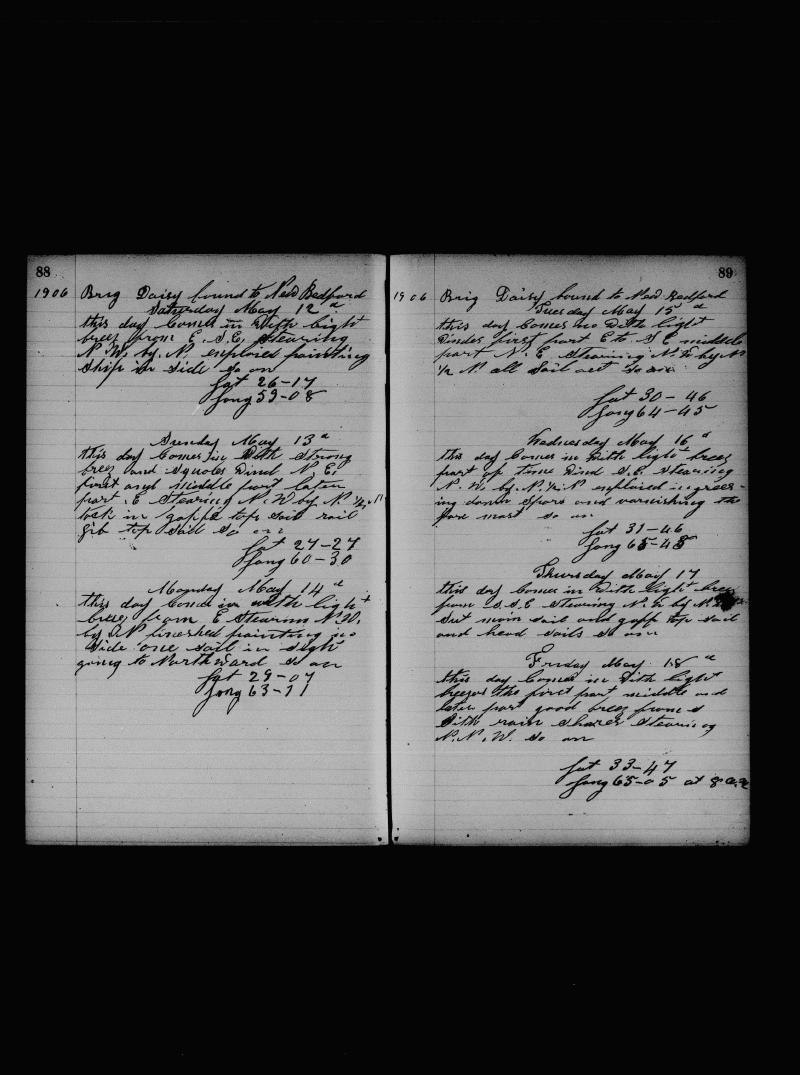 88
1906 Brig Daisy bound to New Bedford
Saturday May 12 d
this day Comes in With light
breez from E. S.E, Stearing
N. W. by N. enploied painting
Ship in Side So on
Lat 26-17
Long 59-08
Sunday May 13 d
this day Comes in With Strong
breez and Squoles Wind N. E.
first and middle part laten
part E Stearing N. W by N. 1/2, N
tock in gapp top Sail
gib top Sail So on
Lat 27-27
Long 60-30
Monday May 14 d
this day Comes in with light
breez from E Stearinn N.W.
by N fineshed painting in
Side one Sail in Sight
going to Northward So on
Lat 29-07
Long 63-11
89
1906 Brig Daisy bound to New Bedford
Tuesday May 15 d
this day Comes in With light
Windes first part E to S E middle
part N. E Stearing N. W by N
1/2 N. all Sail set So on
Lat 30-46
Long 64-45
Wednesday May 16 d
this day Comes in With light breez
part of time Wind S.E. Stearing
N. W. by. N. 1/2 N enploied in grees-
ing down Spars and varnishing the
fore mast So on
Lat 31-46
Long 65-45
Thursday May 17
this day Comes in With light breez
from S.S.E Stearing N. W by N.
Set main sail and gapp top sail
and head sails So on
Friday May 18 d
this day Comes in With light
breezes the first part middle and
laten part good breez from S
With rain Shares Stearing
N. N. W. So on
Lat 33-47
Long 65-05 at 8 a.m